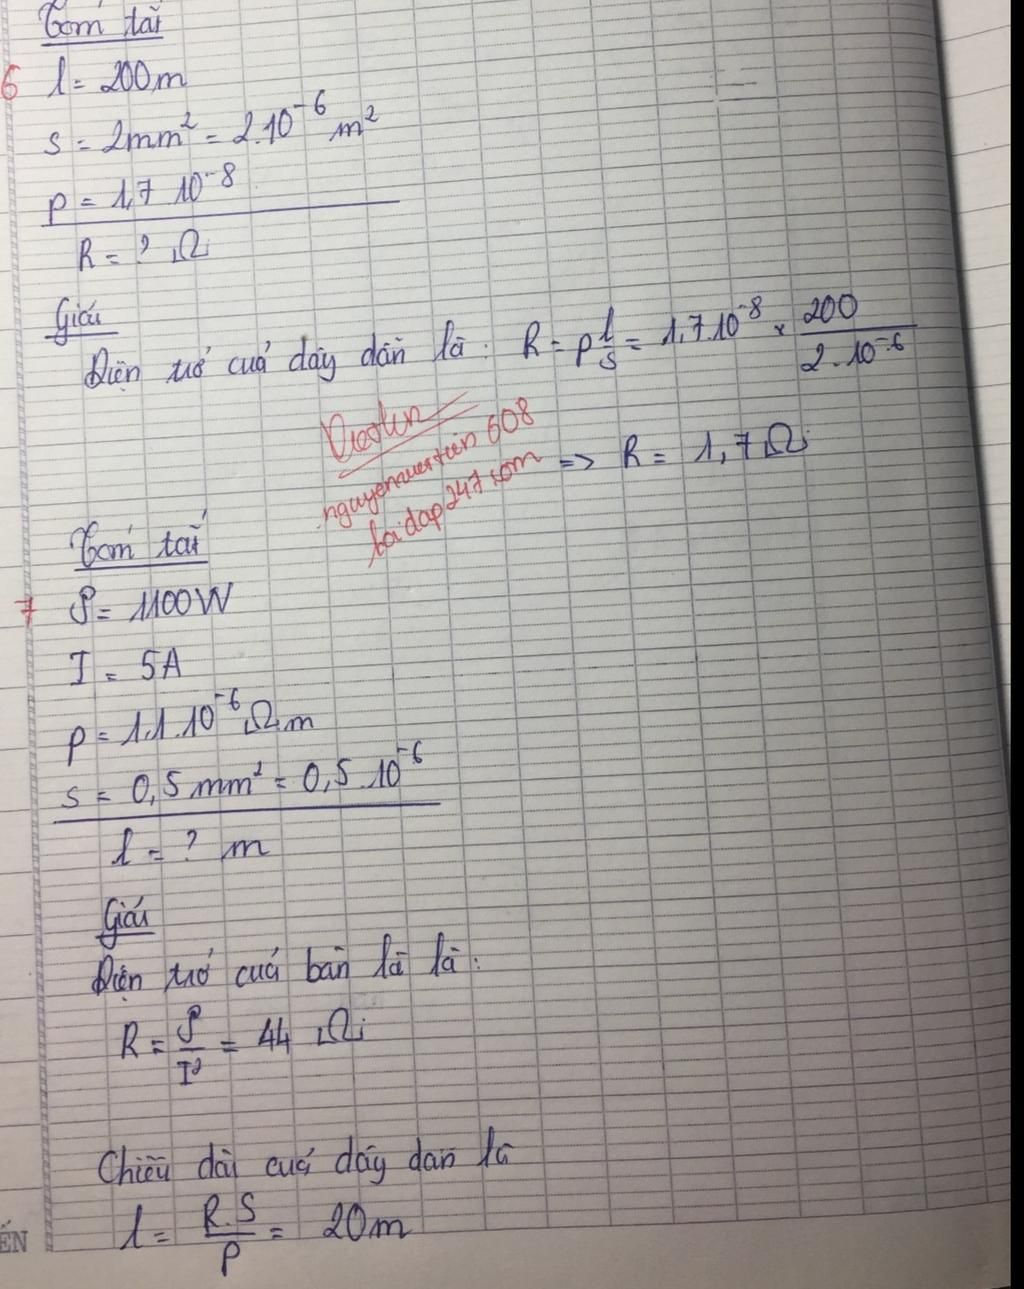 Tóm tắt
6 l = 200m
S = 2mm² = 2.10⁻⁶ m²
ρ = 1,7 10⁻⁸
R = ? Ω
Giải
Điện trở của dây dẫn là: R = ρ l/S = 1,7.10⁻⁸ × 200/2.10⁻⁶
=> R = 1,7Ω
608
Tóm tắt
7 P = 1100W
I = 5A
ρ = 1,1.10⁻⁶ Ω m
S = 0,5 mm² = 0,5.10⁻⁶
l = ? m
Giải
Điện trở của bàn là là:
R = P/I² = 44 Ω
Chiều dài của dây dẫn là
l = R.S/ρ = 20m
ẾN